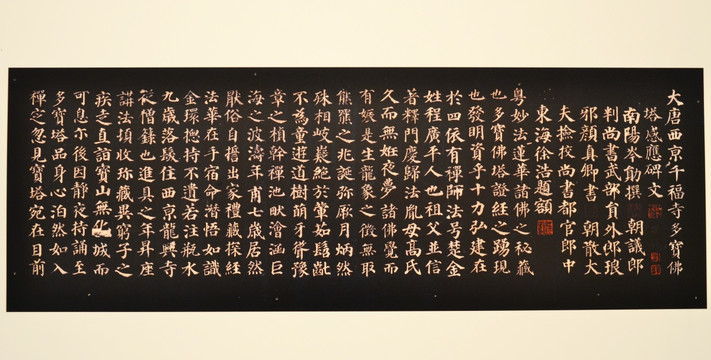 大唐西京千福寺多寶佛
塔感應碑文
南陽岑勛撰 朝議郎
判尚書武部員外郎琅
邪顏真卿書 朝散大
夫撿挍尚書都官郎中
東海徐浩題額
粵妙法蓮華諸佛之秘藏
也多寶佛塔證經之踴現
也發明資乎十力弘建在
於四依有禪師法号楚金
姓程廣平人也祖父並信
著釋門慶歸法胤母高氏
久而無妊夜夢諸佛覺而
有娠是生龍象之徵無取
熊羆之兆誕弥厥月炳然
殊相岐嶷絕於葷茹髫齔
不為童遊道樹萌牙聳豫
章之楨幹禪池畎澮涵巨
海之波濤年甫七歲居然
猒俗自誓出家禮藏探經
法華在手宿命潛悟如識
金環揔持不遺若注瓶水
九歲落髮住西京龍興寺
從僧籙也進具之年昇座
講法頓收珍藏異窮子之
疾走直詣寶山無化城而
可息尔後因靜夜持誦至
多寶塔品身心泊然如入
禪定忽見寶塔宛在目前